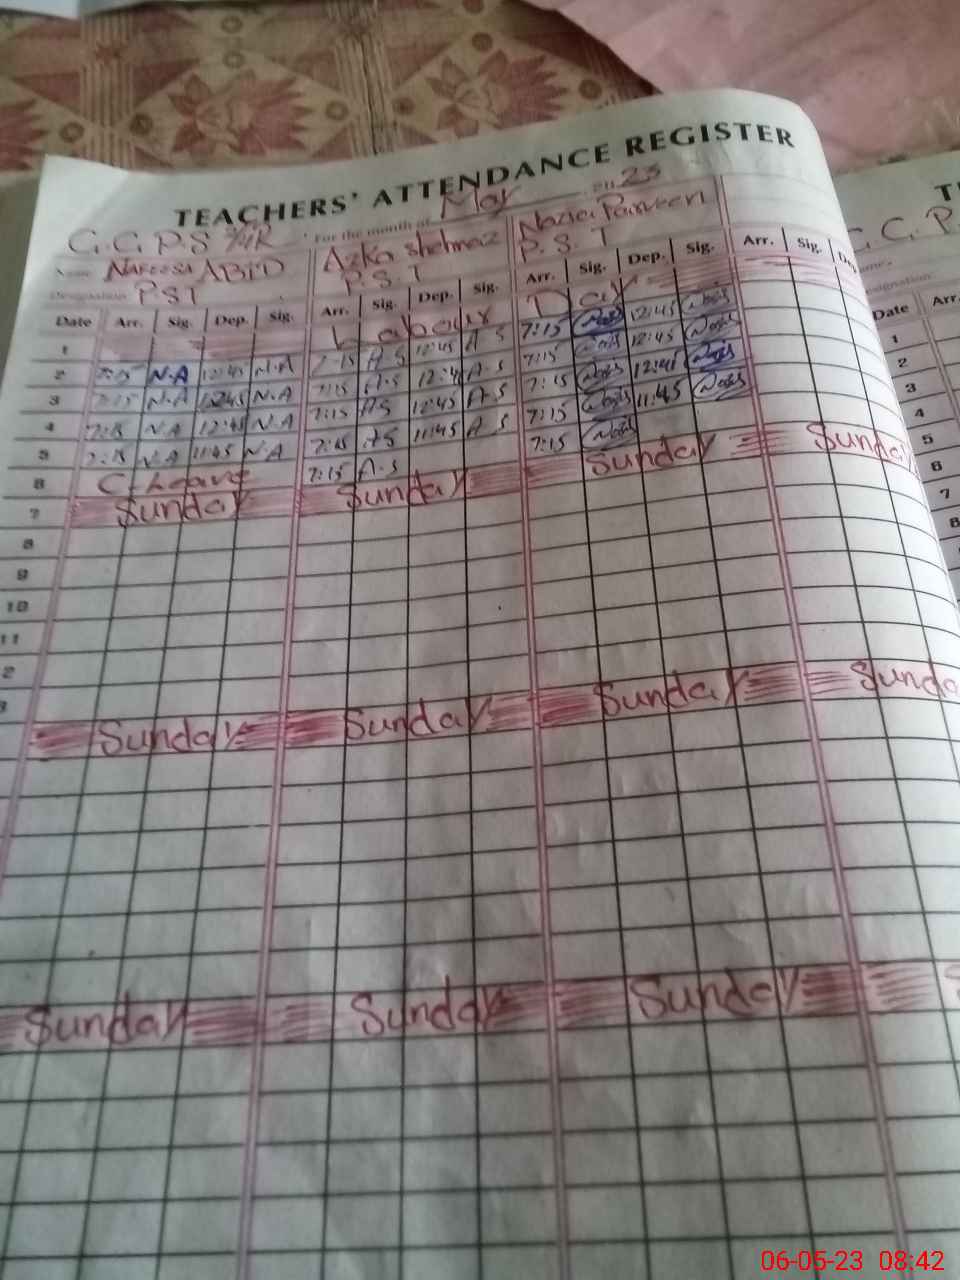 TEACHERS' ATTENDANCE REGISTER
For the month of May 2023
G. G. P. S
Name NAFEESA ABID Azka Shehnaz Nazia Parveen
Designation PST P. S. T P. S. T
Date Arr. Sig. Dep. Sig. Arr. Sig. Dep. Sig. Arr. Sig. Dep. Sig. Arr. Sig.
1 Labour Day
2 7:15 N.A 12:45 N.A 7:15 A S 12:45 A S 7:15 12:45
3 7:15 N.A 12:45 N.A 7:15 A.S 12:45 A.S 7:15 12:45
4 7:15 N.A 12:45 N.A 7:15 AS 12:45 A.S 7:15 12:45
5 7:15 N.A 11:45 N.A 7:15 AS 11:45 A S 7:15 11:45
6 C. Leave 7:15 A.S 7:15
7 Sunday Sunday Sunday Sunday
8
9
10
11
2
3
Sunday Sunday Sunday Sunday
Sunday Sunday Sunday
Date Arr.
1
2
3
4
5
6
7
8
06-05-23 08:42